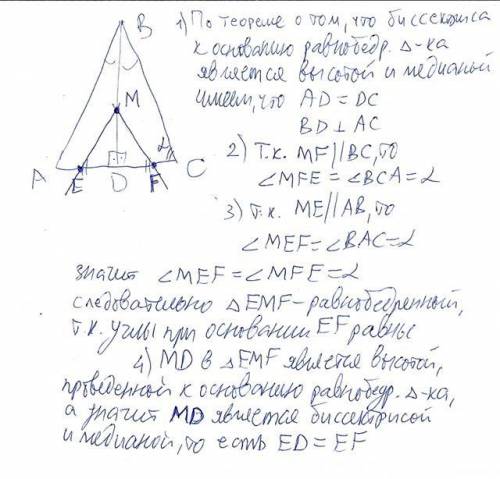 B
M
A
E
D
F
C
α
1) По теореме о том, что биссектриса
к основанию равнобедр. Δ-ка
является высотой и медианой
имеем, что AD = DC
BD ⊥ AC
2) т.к. MF || BC, то
∠MFE = ∠BCA = α
3) т.к. ME || AB, то
∠MEF = ∠BAC = α
значит ∠MEF = ∠MFE = α
следовательно Δ EMF - равнобедренный,
т.к. углы при основании EF равны
4) MD в Δ EMF является высотой,
проведенной к основанию равнобедр. Δ-ка,
а значит MD является биссектрисой
и медианой, то есть ED = EF